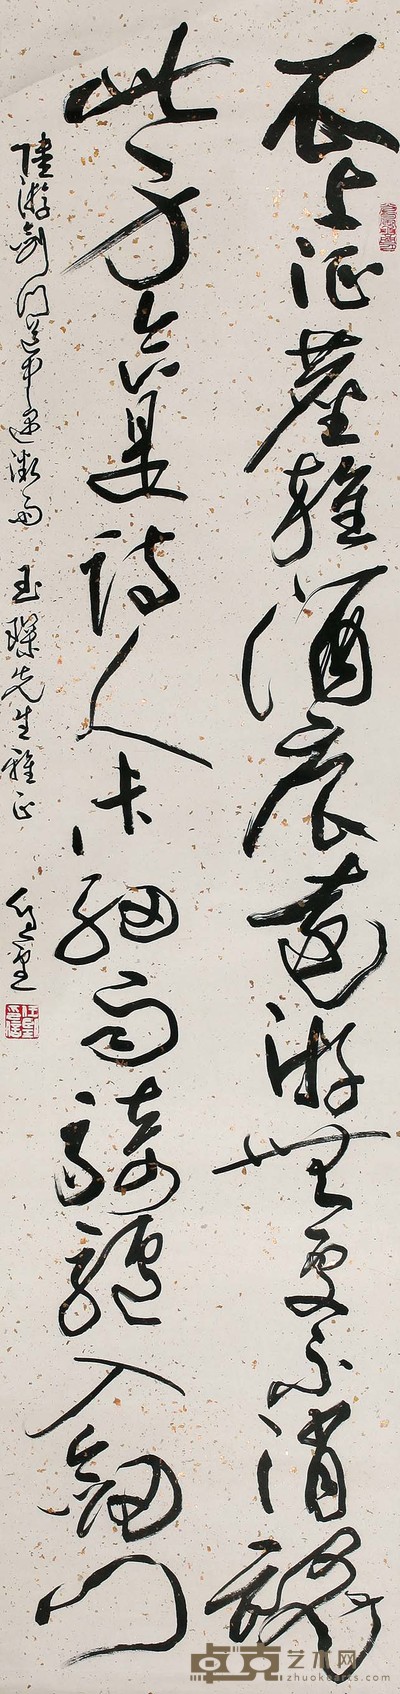 衣上征塵雜酒痕遠游無處不消魂
此身合是詩人未細雨騎驢入劍門
陸游劍門道中遇微雨 玉 先生雅正
卓克艺术网
zhuokearts.com